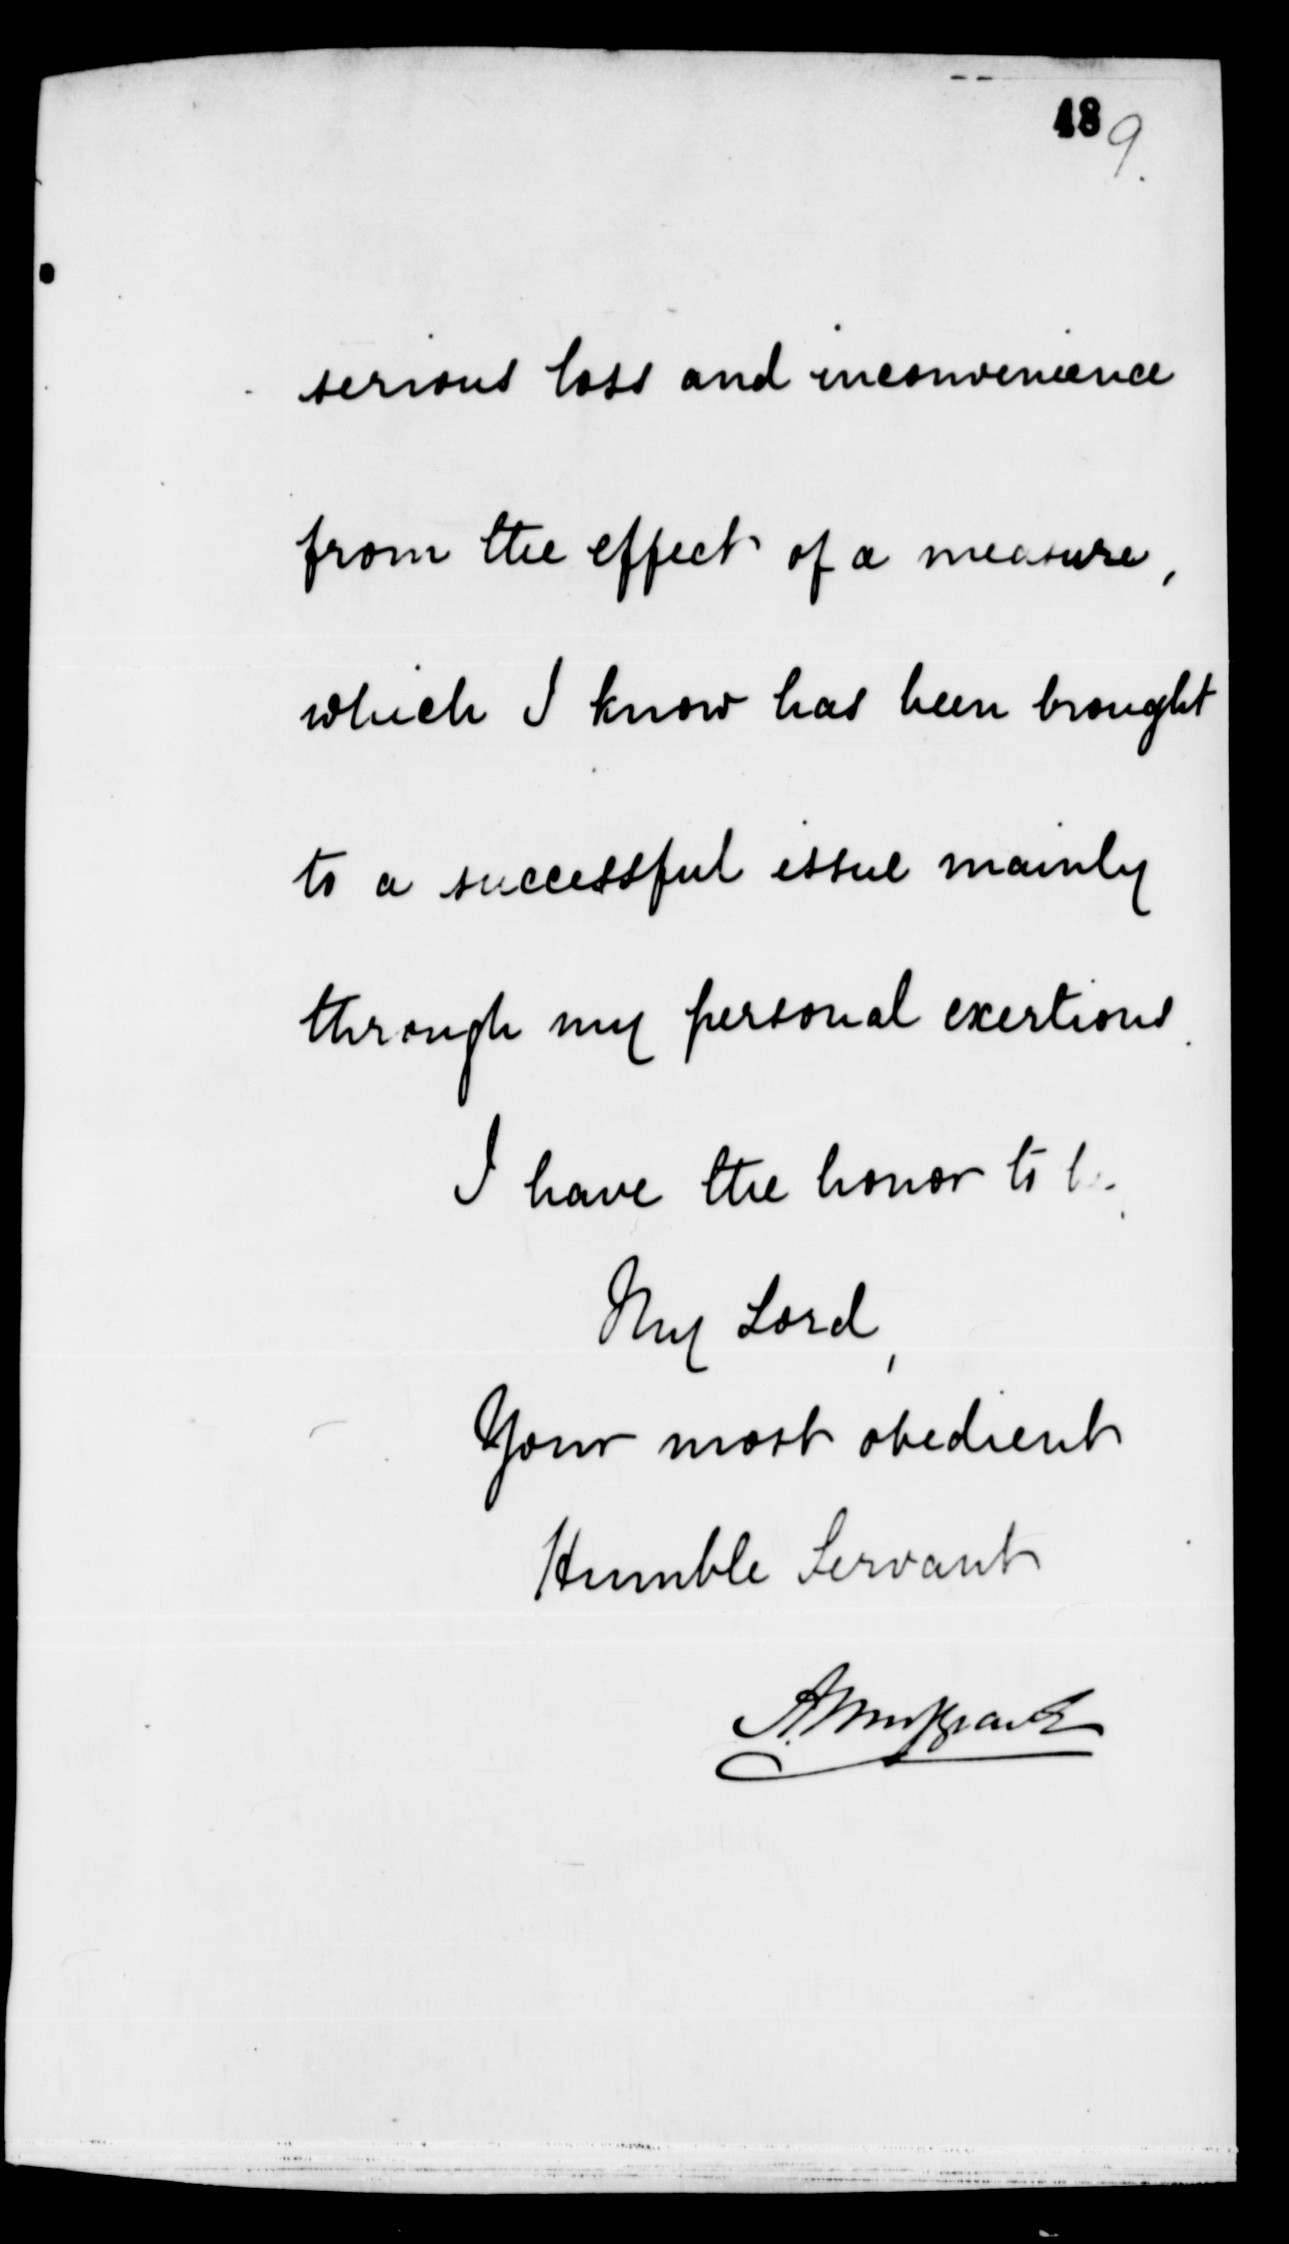 48 9.
serious loss and inconvenience
from the effect of a measure,
which I know has been brought
to a successful issue mainly
through my personal exertions.
I have the honor to be,
My Lord,
Your most obedient
Humble Servant